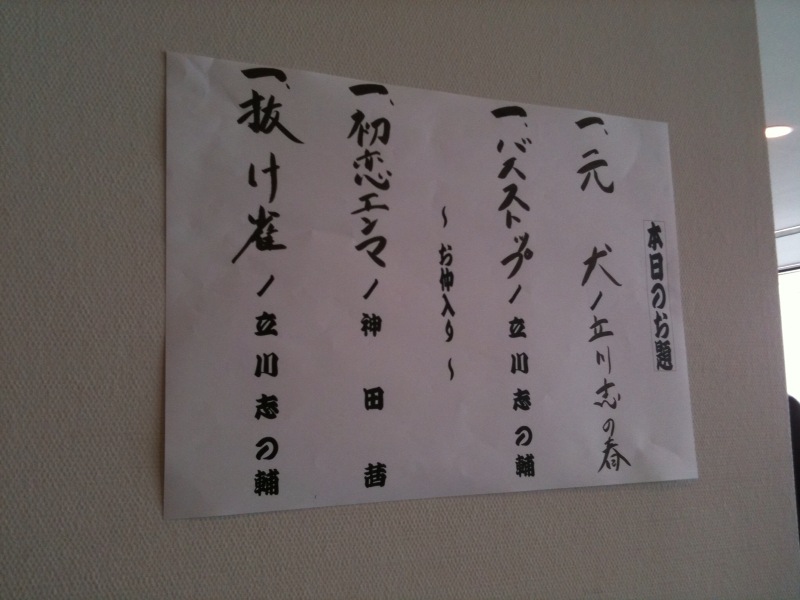 本日のお題
一、元 犬/立川志の春
一、バスストップ/立川志の輔
〜お仲入り〜
一、初恋エンマ/神田茜
一、抜け雀/立川志の輔